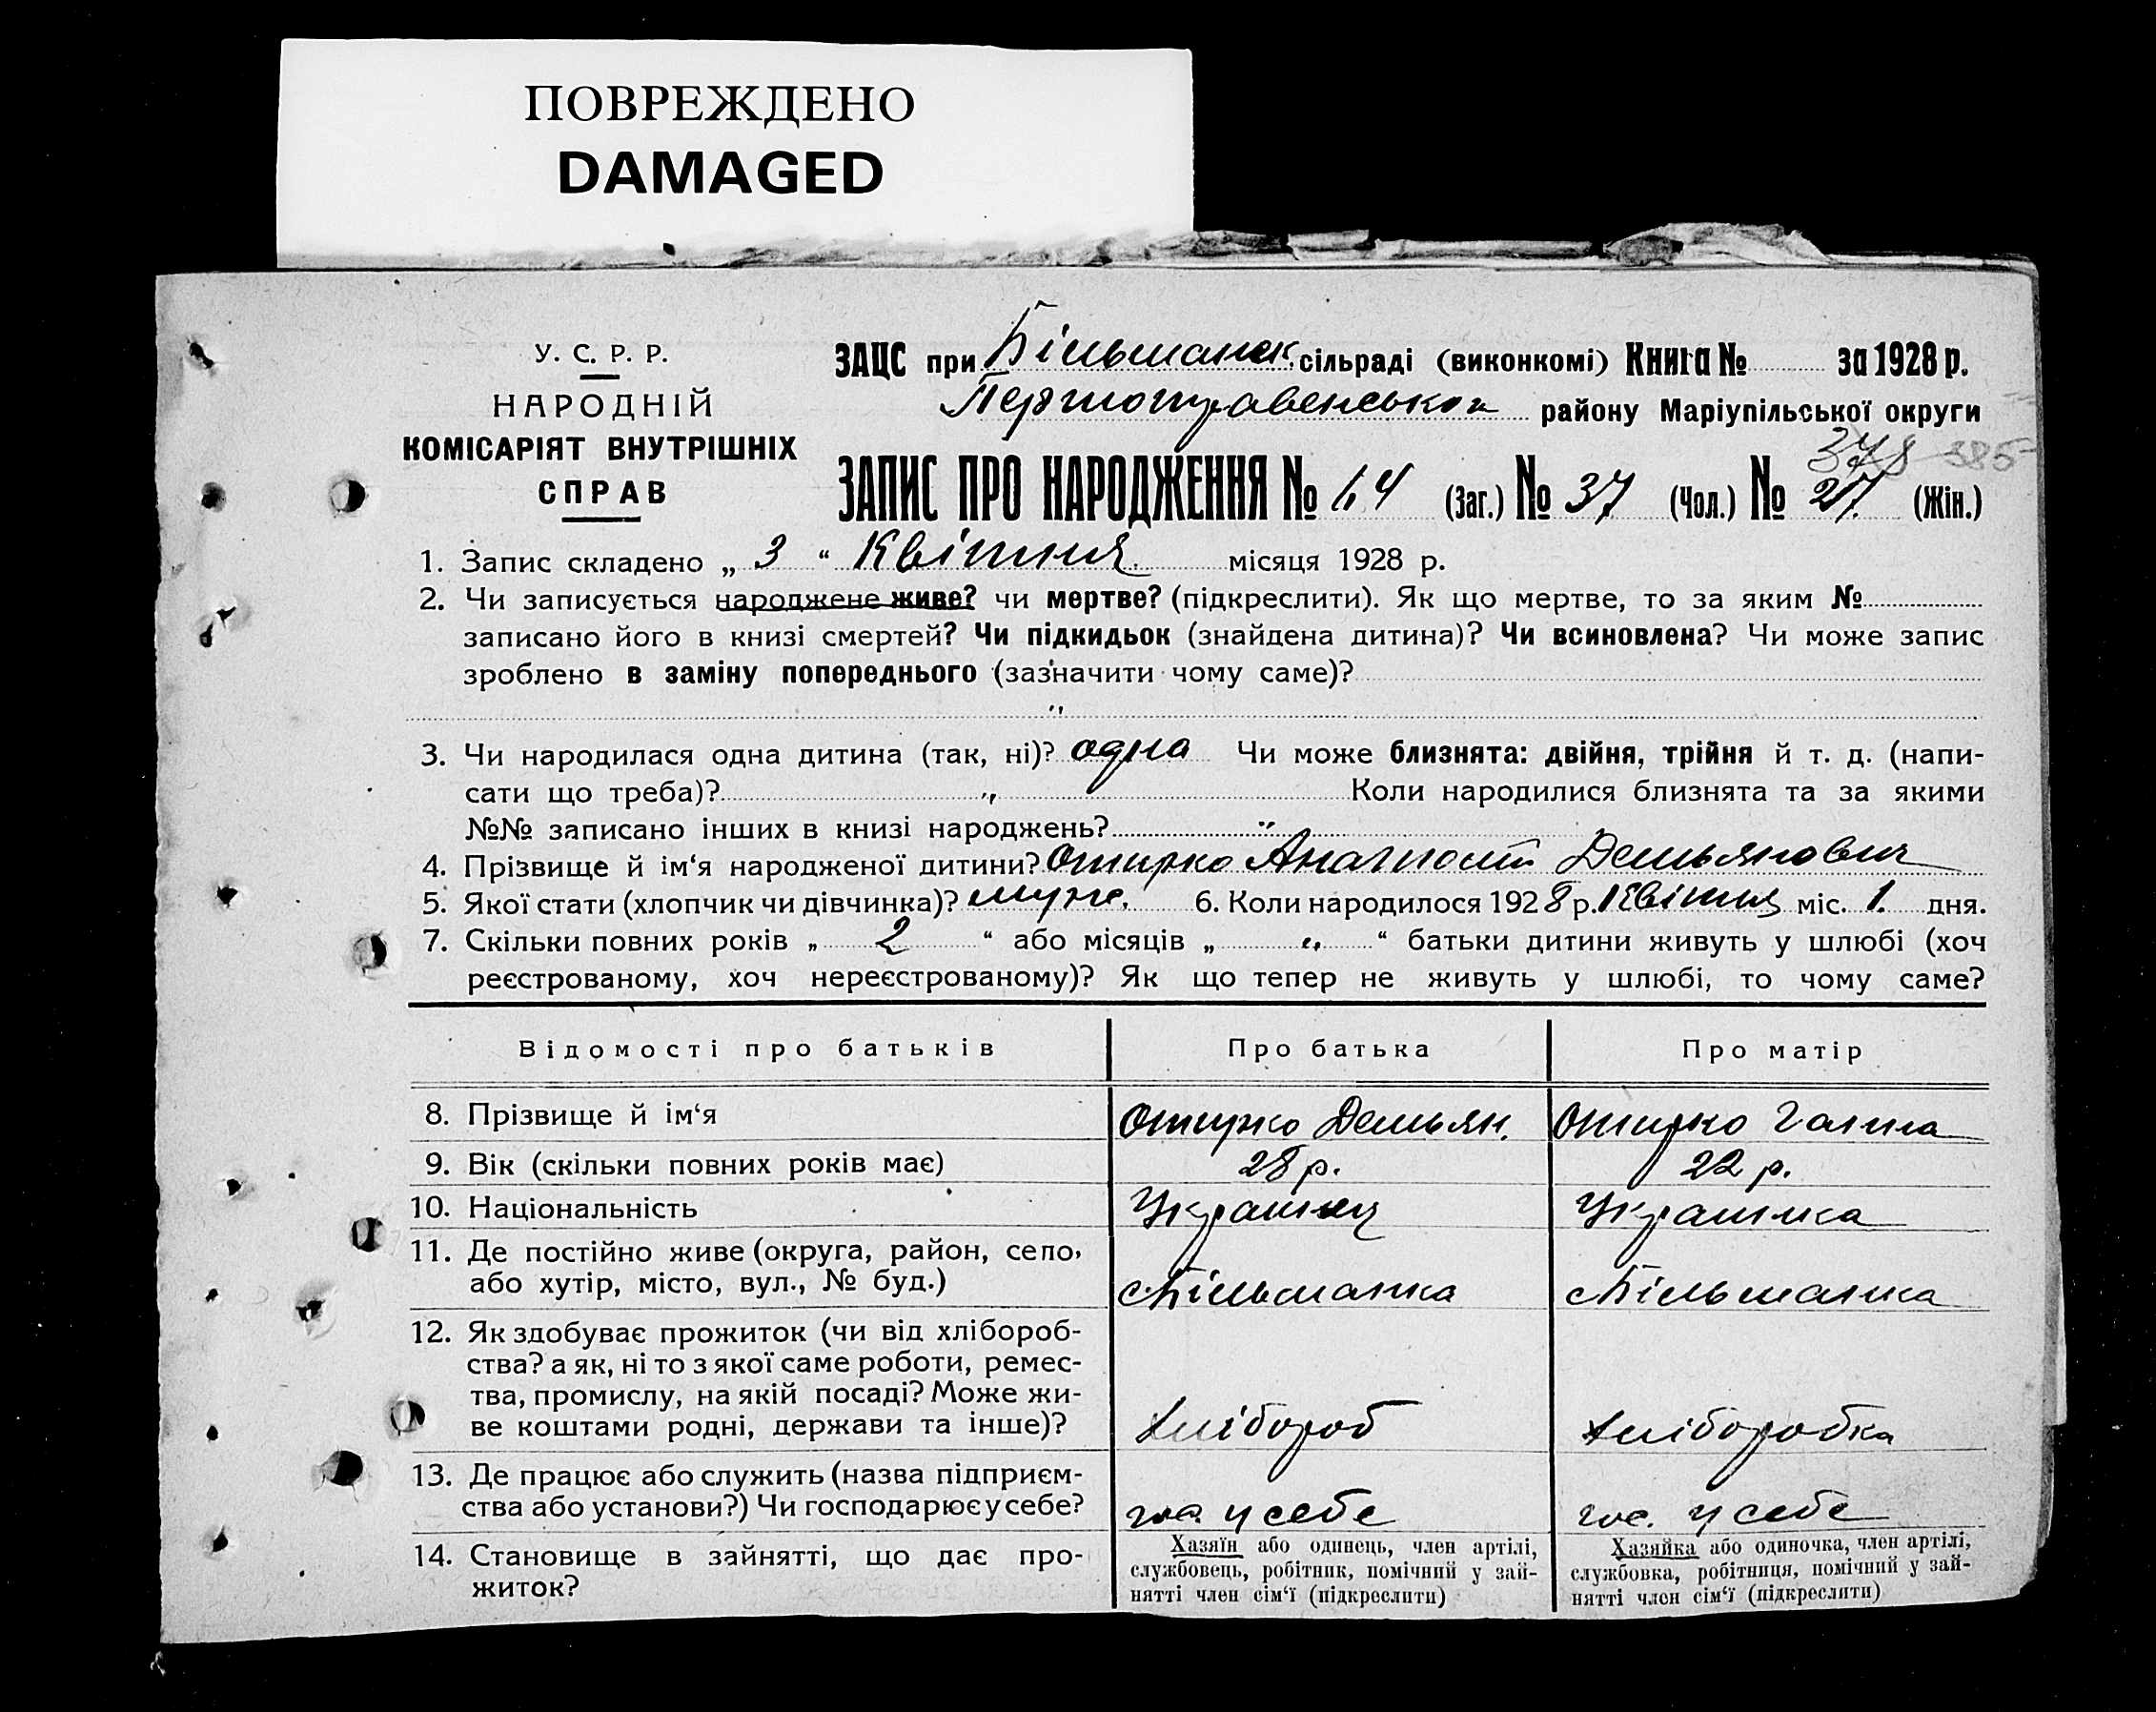 ПОВРЕЖДЕНО
DAMAGED
У. С. Р. Р.
НАРОДНІЙ
КОМІСАРІЯТ ВНУТРІШНІХ
СПРАВ
ЗАЦС при Більманск. сільраді (виконкомі) Книга № за 1928 р.
району Маріупільської округи
378 385
ЗАПИС ПРО НАРОДЖЕННЯ № 64 (Заг.) № 37 (Чол.) № 27. (Жін.)
1. Запис складено „ 3 “ Квітня місяця 1928 р.
2. Чи записується народжене живе? чи мертве? (підкреслити). Як що мертве, то за яким №
записано його в книзі смертей? Чи підкидьок (знайдена дитина)? Чи всиновлена? Чи може запис
зроблено в заміну попереднього (зазначити чому саме)?
"
3. Чи народилася одна дитина (так, ні)? одна Чи може близнята: двійня, трійня й т. д. (напи-
сати що треба)? " Коли народилися близнята та за якими
№№ записано інших в книзі народжень? "
4. Прізвище й ім‘я народженої дитини? Отирко Анатолій Демьянович
5. Якої стати (хлопчик чи дівчинка)? муже. 6. Коли народилось 1928 р. Квітня міс. 1. дня.
7. Скільки повних років „ 2 “ або місяців „ " “ батьки дитини живуть у шлюбі (хоч
реєстрованому, хоч нереєстрованому)? Як що тепер не живуть у шлюбі, то чому саме?
Відомості про батьків Про батька Про матір
8. Прізвище й ім‘я Отирко Демьян. Отирко Галина
9. Вік (скільки повних років має) 28 р. 22 р.
10. Національність Українец Українка
11. Де постійно живе (округа, район, село,
або хутір, місто, вул., № буд.) с Більманка с Більманка
12. Як здобуває прожиток (чи від хлібороб-
ства? а як, ні то з якої саме роботи, ремес-
тва, промислу, на якій посаді? Може жи-
ве коштами родні, держави та інше)? Хлібороб Хліборобка
13. Де працює або служить (назва підприєм-
ства або установи?) Чи господарює у себе? гос. у себе гос. у себе
14. Становище в зайнятті, що дає про-
житок?
Хазяїн або одинець, член артілі,
службовець, робітник, помічний у зай-
нятті член сім‘ї (підкреслити)
Хазяйка або одиночка, член артілі,
службовка, робітниця, помічний у зай-
нятті член сім‘ї (підкреслити)